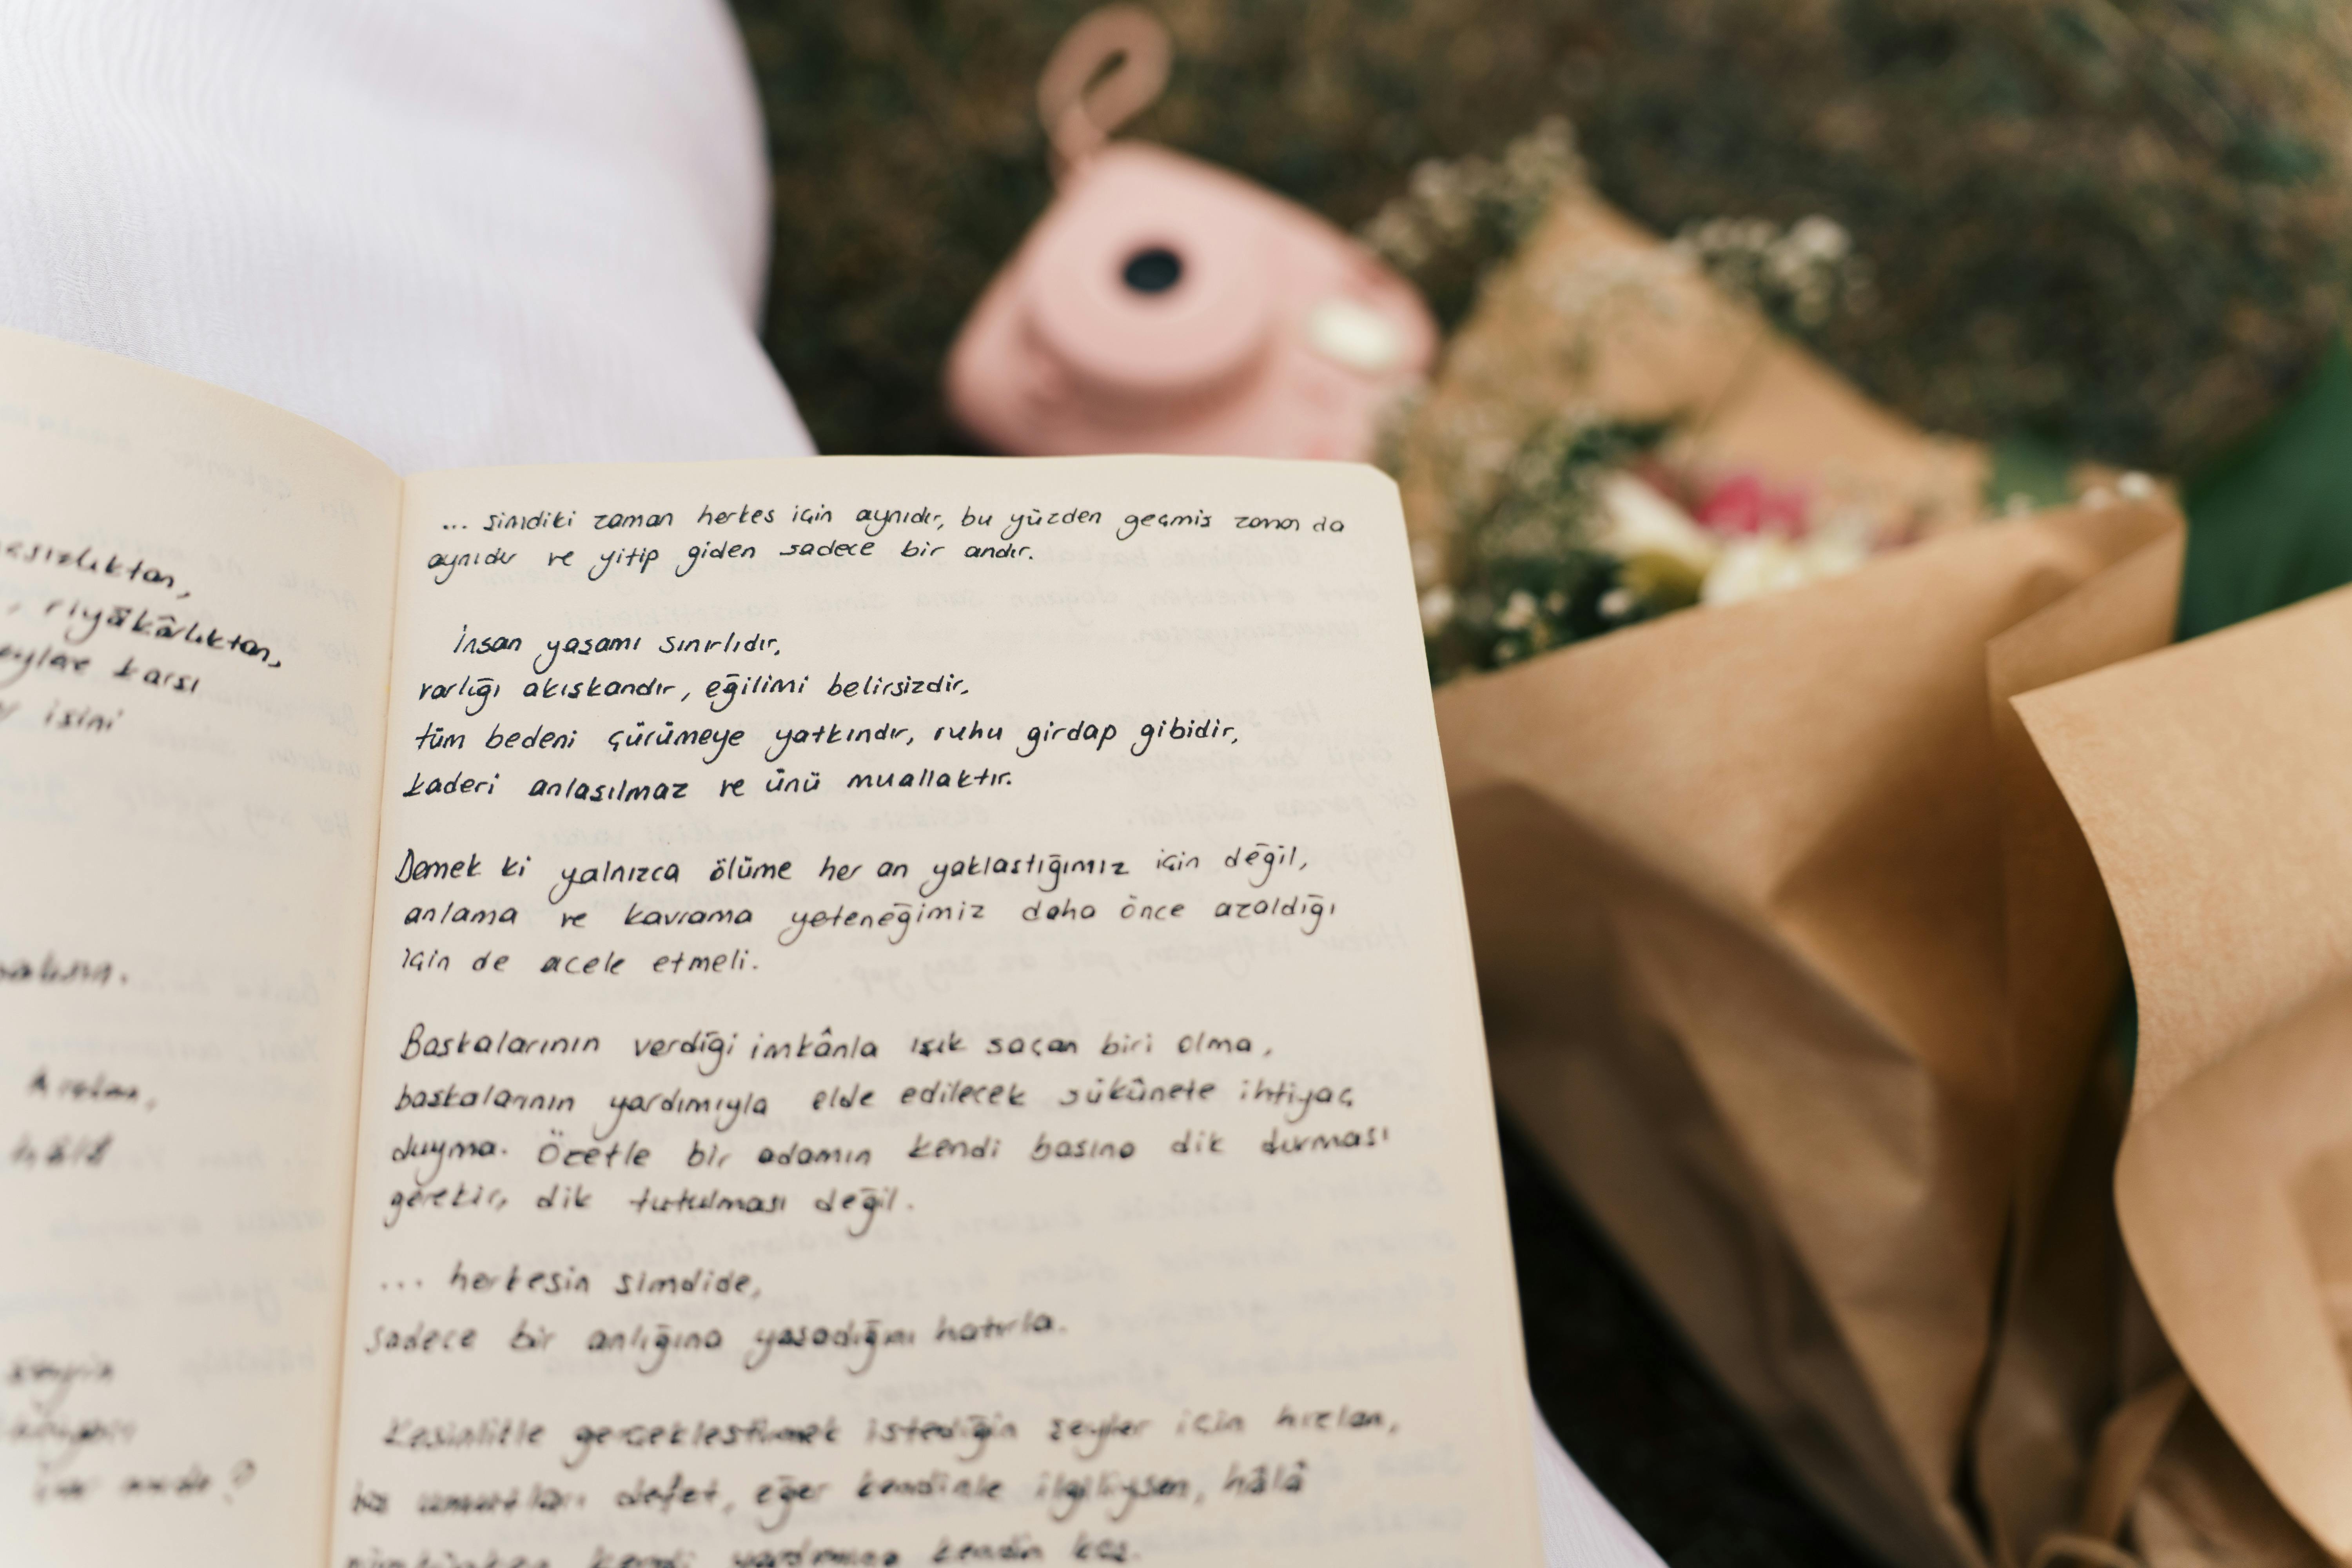 asızlıktan,
, riyâkârlıktan,
eylere karsı
r isini
Aralma,
hâlâ
... simdiki zaman herkes için aynıdır, bu yüzden geçmis zaman da
aynıdır ve yitip giden sadece bir andır.
İnsan yasamı sınırlıdır,
varlığı akıskandır, eğilimi belirsizdir,
tüm bedeni çürümeye yatkındır, ruhu girdap gibidir,
kaderi anlasılmaz ve ünü muallaktır.
Demek ki yalnızca ölüme her an yaklastığımız için değil,
anlama ve kavrama yeteneğimiz daha önce azaldığı
için de acele etmeli.
Baskalarının verdiği imkânla ışık saçan biri olma,
baskalarının yardımıyla elde edilecek sükûnete ihtiyaç
duyma. Özetle bir adamın kendi basına dik durması
gerekir, dik tutulması değil.
... herkesin simdide,
sadece bir anlığına yasadığını hatırla.
Kesinlikle gerçeklestirmek istediğin şeyler için hızlan,
umutları defet, eğer kendinle ilgiliysen, hâlâ
kendi yardımına kendin koş.